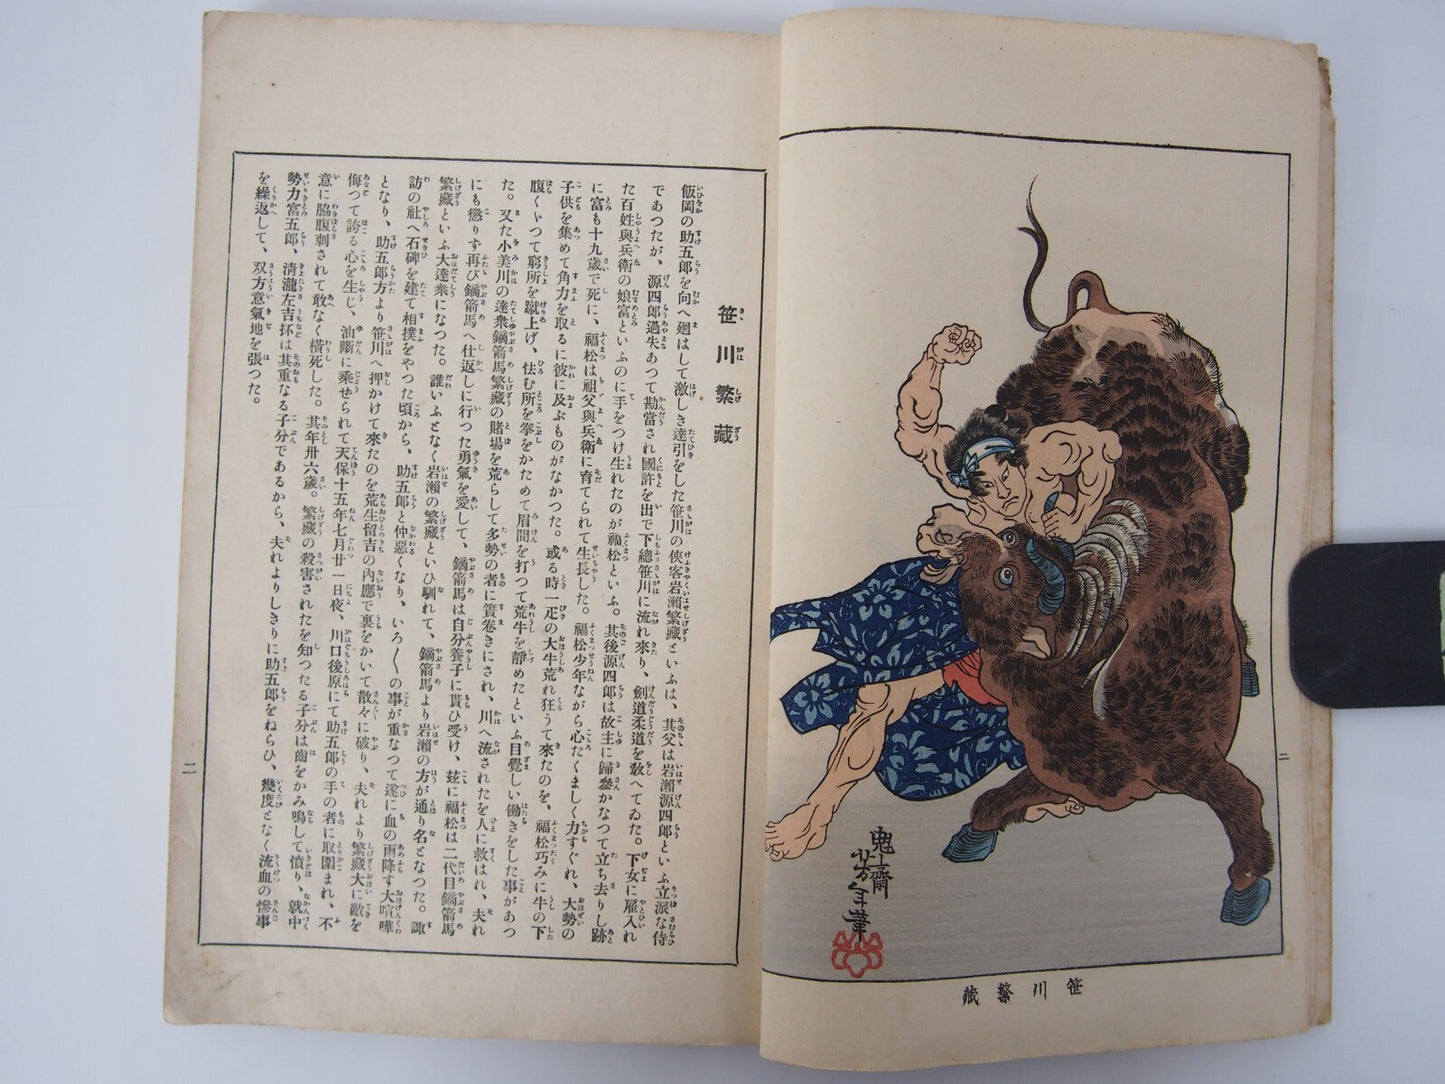 笹川繁藏
飯岡の助五郎を向へ廻はして激しき達引をした笹川の俠客岩瀬繁藏といふは、其父は岩瀬源四郎といふ立派な侍
であつたが、源四郎過失あつて勘當され國許を出で下總笹川に流れ來り、劍道柔道を敎へてゐた。下女に雇入れ
た百姓與兵衛の娘富といふのに手をつけ生れたのが福松といふ。其後源四郎は故主に歸參かなつて立ち去りし跡
に富も十九歳で死に、福松は祖父與兵衛に育てられて生長した。福松少年ながら心たくましく力すぐれ、大勢の
子供を集めて角力を取るに彼に及ぶものがなかつた。或る時一疋の大牛荒れ狂うて來たのを、福松巧みに牛の下
腹くゞつて窮所を蹴上げ、怯む所を拳をかためて眉間を打つて荒牛を靜めたといふ目覺しい働きをした事があつ
た。又た小美川の達衆鏑箭馬繁藏の賭場を荒らして多勢の者に簀卷きにされ、川へ流されたを人に救はれ、夫れ
にも懲りず再び鏑箭馬へ仕返しに行つた勇氣を愛して、鏑箭馬は自分養子に貰ひ受け、玆に福松は二代目鏑箭馬
繁藏といふ大達衆になつた。誰いふとなく岩瀬の繁藏といひ馴れて、鏑箭馬より岩瀬の方が通り名となつた。諏
訪の社へ石碑を建て相撲をやつた頃から、助五郎と仲惡くなり、いろ〱の事が重なつて遂に血の雨降す大喧嘩
となり、助五郎方より笹川へ押かけて來たのを荒生留吉の內應で裏をかいて散々に破り、夫れより繁藏大に敵を
侮つて誇る心を生じ、油斷に乘せられて天保十五年七月廿一日夜、川口後原にて助五郎の手の者に取圍まれ、不
意に脇腹刺されて敢なく橫死した。其年卅六歲。繁藏の殺害されたを知つたる子分は齒をかみ鳴して憤り、就中
勢力富五郎、淸瀧左吉抔は其重なる子分であるから、夫れよりしきりに助五郎をねらひ、幾度となく流血の慘事
を繰返して、双方意氣地を張つた。
二
二
鬼才齋
芳年筆
笹川繁藏